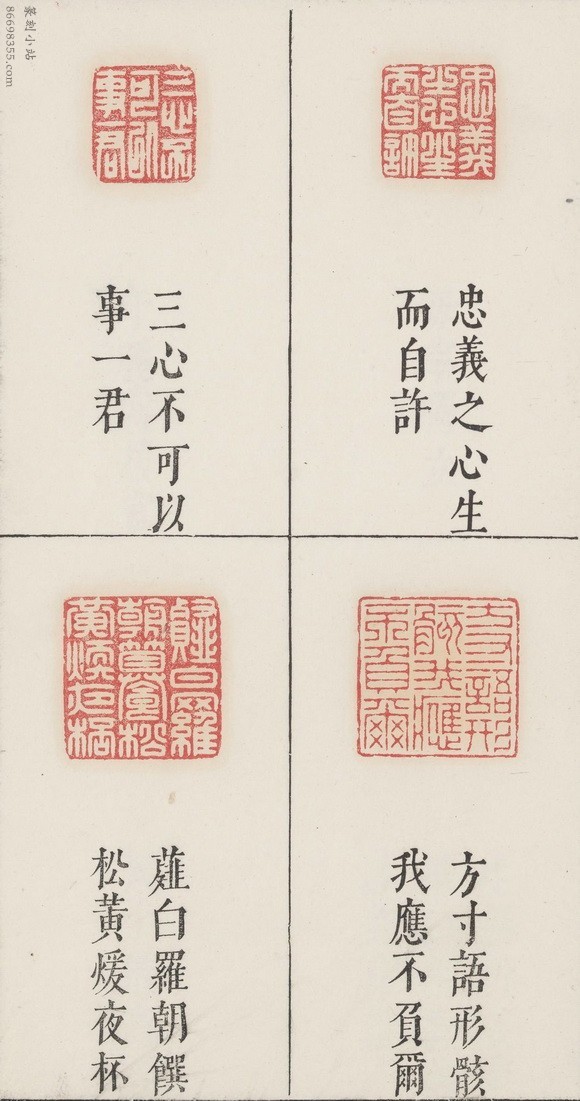 忠義之心生
而自許
三心不可以
事一君
方寸語形骸
我應不負爾
薤白羅朝饌
松黃煖夜杯
篆刻小站
86698355.com